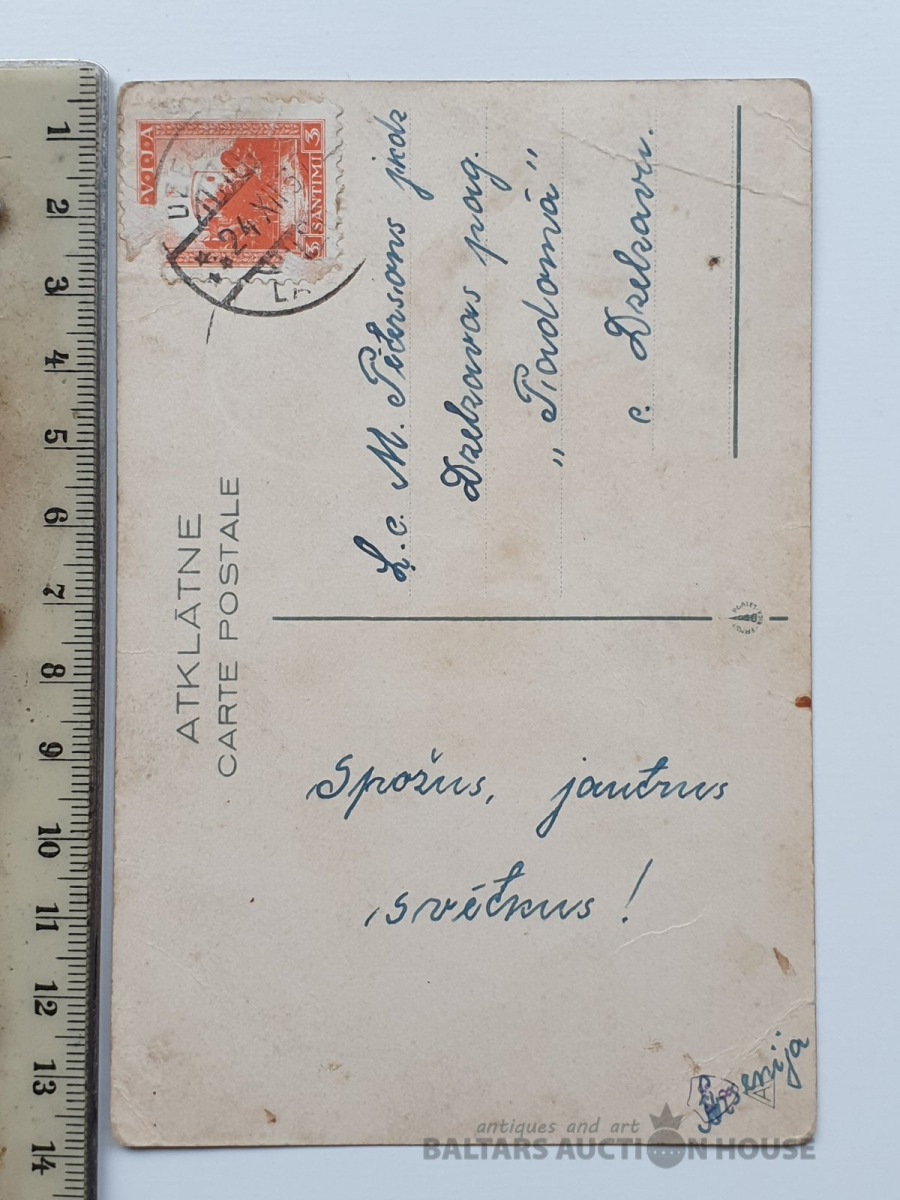 ATKLĀTNE
CARTE POSTALE
VIJA
3 SANTIMI 3
24 XII
L.c. M. Pētersons jkdz
Dzelzavas pag.
"Tiadomā"
c. Dzelzavu.
Spožus, jautrus
svētkus!
antiques and art
BALTARS AUCTION HOUSE
1
2
3
4
5
6
7
8
9
10
11
12
13
14